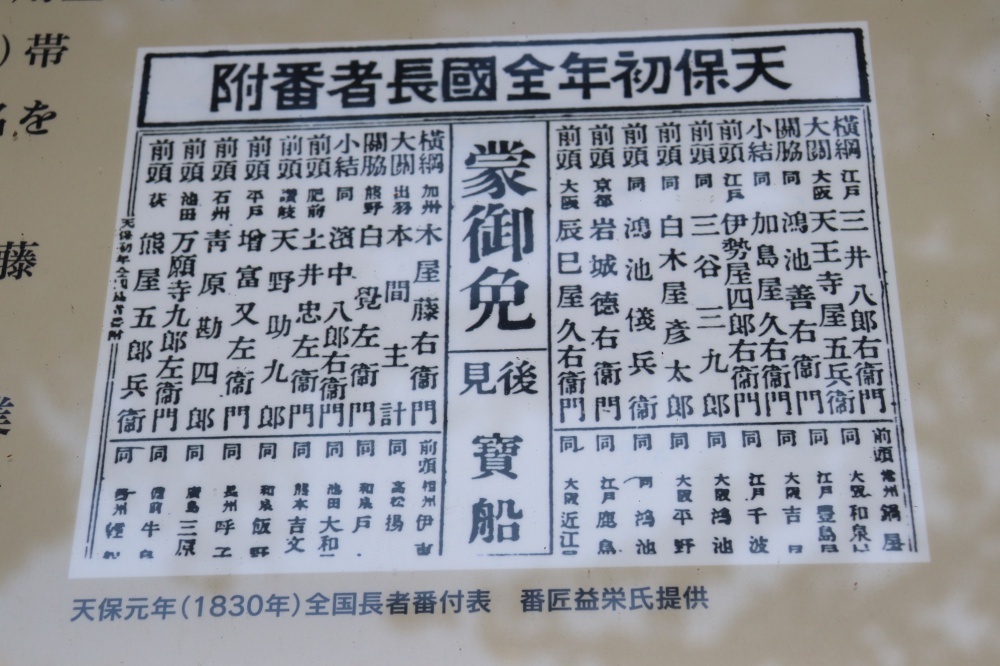 帯
を
藤
業
天保初年全國長者番附
蒙御免
後見
寶船
橫綱 江戸 三井八郎右衞門
大關 大阪 天王寺屋五兵衞
關脇 同 鴻池善右衞門
小結 同 加島屋久右衞門
前頭 江戸 伊勢屋四郎右衞門
前頭 同 三谷三九郎
前頭 同 白木屋彥太郎
前頭 同 鴻池儀兵衞
前頭 京都 岩城德右衞門
前頭 大阪 辰巳屋久右衞門
前頭 常州 鍋屋
同 大阪 和泉
同 江戸 豊島屋
同 大阪 吉
同 江戸 千波
同 大阪 鴻池
同 大阪 平野
同 同 鴻池
同 江戸 鹿島
同 大阪 近江
橫綱 加州 木屋藤右衞門
大關 出羽 本間主計
關脇 熊野 白覺左衞門
小結 同 濱中八郎右衞門
前頭 肥前 土井忠左衞門
前頭 讃岐 天野助九郎
前頭 平戸 增富又左衞門
前頭 石州 靑原勘四郎
前頭 池田 万願寺九郎左衞門
前頭 萩 熊屋五郎兵衞
前頭 相州 伊
同 高松 揚
同 戸
同 池田 大和
同 熊本 吉文
同 飯野
同 長州 呼子
同 廣島 三原
同 備前 牛
同
天保初年全國長者番附
天保元年(1830年)全国長者番付表 番匠益栄氏提供